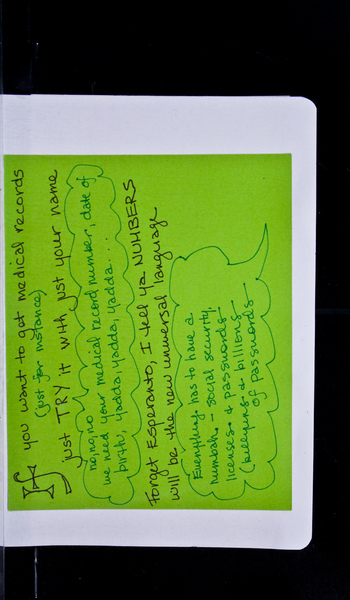 If you want to get medical records
(just for instance)
just TRY it with just your name
no, no, no
we need your medical record number, date of
birth, yadda, yadda, yadda...
Forget Esperanto, I tell ya NUMBERS
will be the new universal language
Everything has to have a
numbah - social security,
licenses & passwords -
(killyuns & billions -
of passwords -